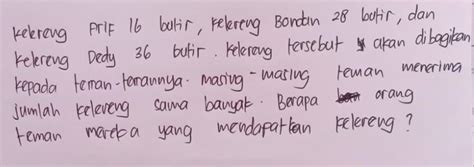 kelereng Arif 16 butir, kelereng Bondan 28 butir, dan
kelereng Dedy 36 butir. kelereng tersebut akan dibagikan
kepada teman-temannya. masing-masing teman menerima
jumlah kelereng sama banyak. Berapa orang
teman mereka yang mendapatkan kelereng?